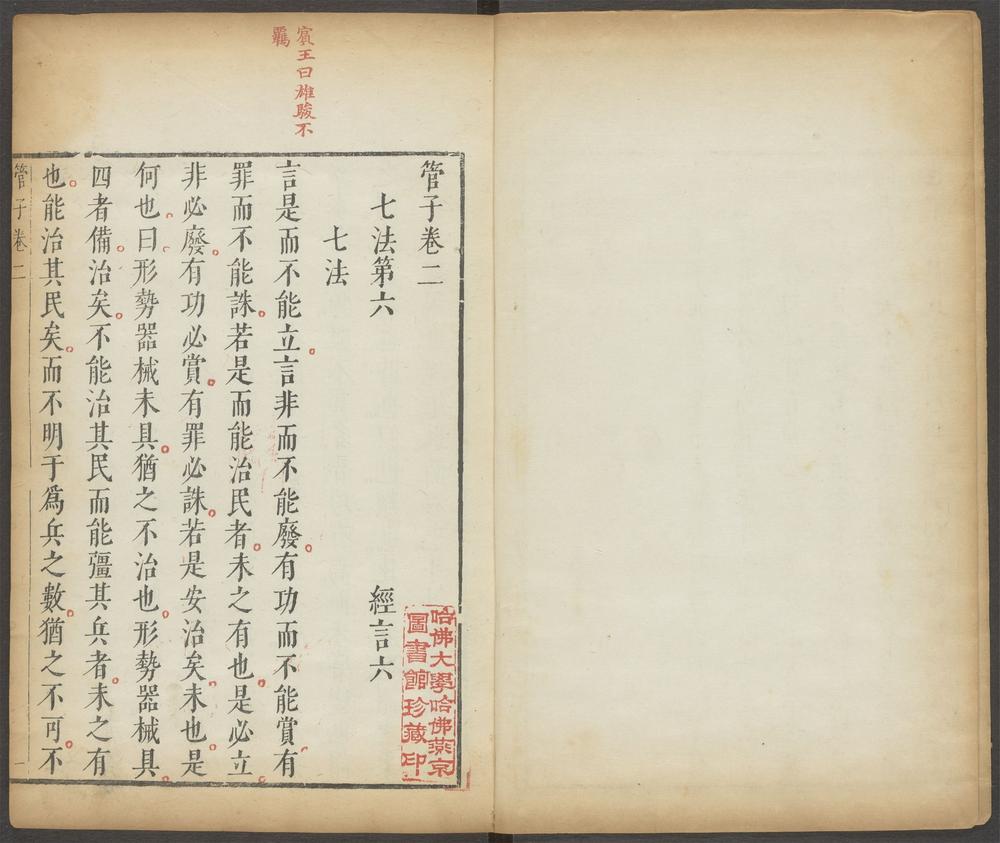 賓王曰雄駿不
羈
管子卷二
七法第六
經言六
七法
言是而不能立言非而不能廢有功而不能賞有
罪而不能誅若是而能治民者未之有也是必立
非必廢有功必賞有罪必誅若是安治矣未也是
何也曰形勢器械未具猶之不治也形勢器械具
四者備治矣不能治其民而能彊其兵者未之有
也能治其民矣而不明于爲兵之數猶之不可不
管子卷二
一
哈佛大學哈佛燕京
圖書館珍藏印